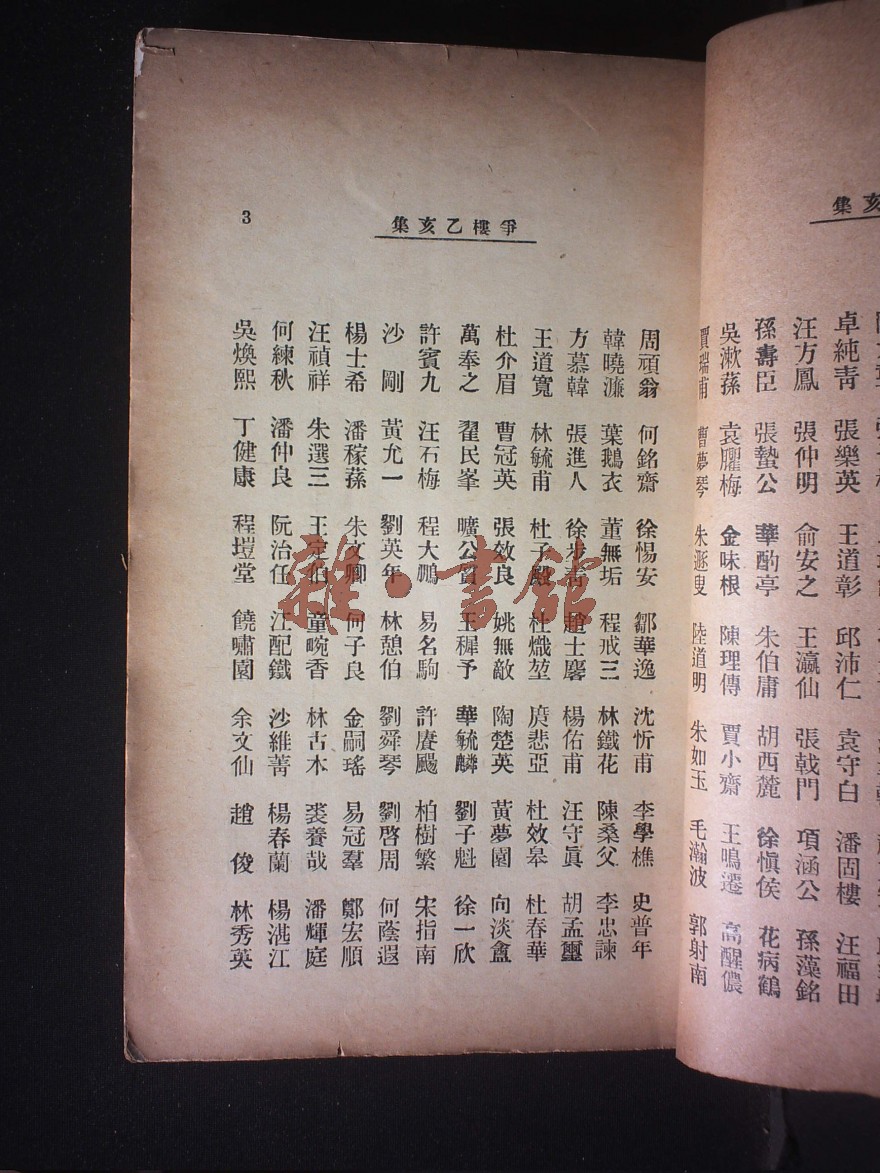 爭樓乙亥集
3
周頑翁 何銘齋 徐惕安 鄒華逸 沈忻甫 李學樵 史普年
韓曉濂 葉鵝衣 董無垢 程戒三 林鐵花 陳桑父 李忠諫
方慕韓 張進人 徐步青 趙士麐 楊佑甫 汪守眞 胡孟璽
王道寬 林毓甫 杜子殿 杜熾堃 廣悲亞 杜效皋 杜春華
杜介眉 曹冠英 張效良 姚無敵 陶楚英 黃夢園 向淡盦
萬奉之 翟民峯 曠公 王穉予 華毓麟 劉子魁 徐一欣
許賓九 汪石梅 程大鵬 易名駒 許賡颺 柏樹繁 宋指南
沙剛 黃允一 劉英年 林憩伯 劉舜琴 劉啓周 何蔭遐
楊士希 潘稼蓀 朱文卿 何子良 金嗣瑤 易冠羣 鄭宏順
汪禎祥 朱選三 王定伯 童畹香 林古木 裘養哉 潘輝庭
何練秋 潘仲良 阮治任 江配鐵 沙維菁 楊春蘭 楊湛江
吳煥熙 丁健康 程塏堂 饒嘯園 余文仙 趙俊 林秀英
亥集
卓純青 張樂英 王道彰 邱沛仁 袁守白 潘固樓 汪福田
汪方鳳 張仲明 俞安之 王瀛仙 張戟門 項涵公 孫藻銘
孫壽臣 張蟄公 華酌亭 朱伯庸 胡西麓 徐愼侯 花病鶴
吳漱蓀 袁臞梅 金味根 陳理傳 賈小齋 王鳴遷 高醒儂
賈瑞甫 曹夢琴 朱遯叟 陸道明 朱如玉 毛瀚波 郭射南
雜·書館